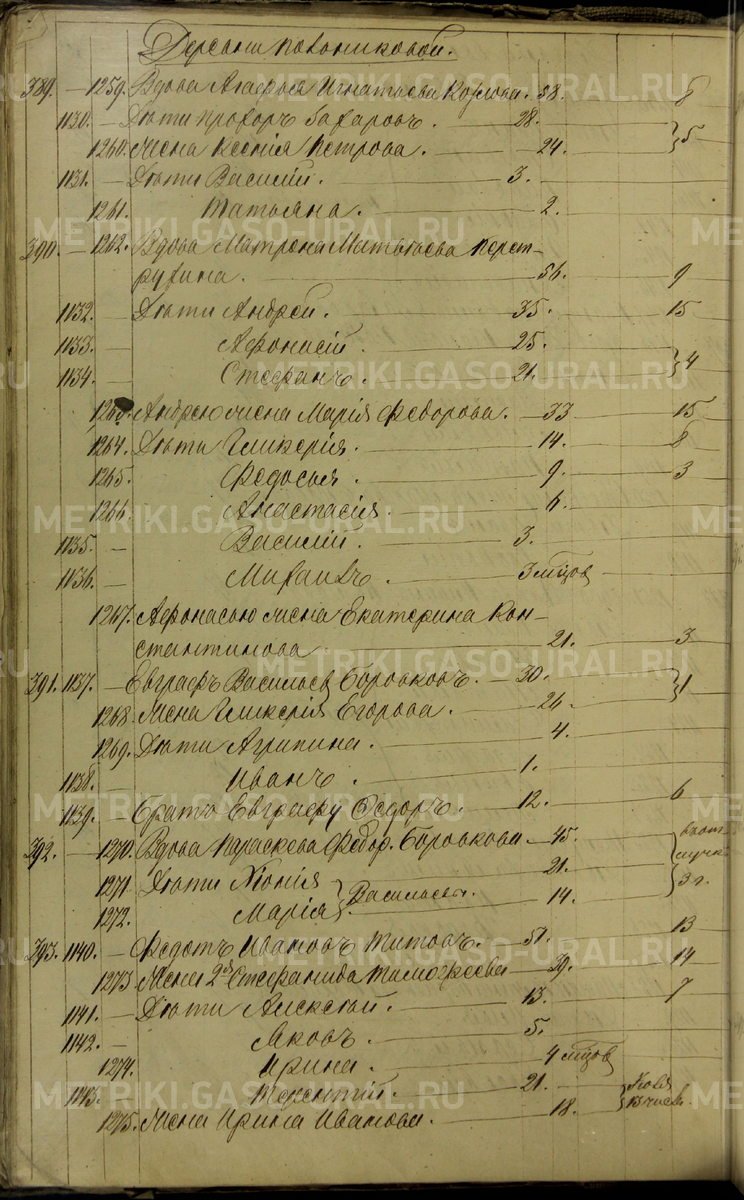 Деревни Полониковой.
389. — 1259. Вдова Агафья Игнатьева Козлова. 58. — 8
1130. — Дѣти Прохоръ Захаровъ. 28. } 5
1260. Жена Ксенія Петрова. 24.
1131. — Дѣти Василій. 3.
1261. Татьяна. 2.
390. — 1262. Вдова Матрона Матвѣева Перет-
рухина. 56. 9
1132. — Дѣти Андрей. 35. 15
1133. — Афонасій. 25. } 4
1134. — Стефанъ. 21.
1263. Андрею жена Марія Федорова. — 33 15
1264. Дѣти Гликерія. 14. 8
1265. Федосья. 9. 3
1266. Анастасія. 6.
1135. — Василій. 3.
1136. — Михаилъ. 3 мѣсцов
1267. Афонасью жена Екатерина Кон-
стантинова 21. 3
391. 1137. — Евграфъ Васильев Боровковъ. — 30. } 1
1268. Жена Гликерія Егорова. 26.
1269. Дѣти Агрипина. 4.
1138. — Иванъ. 1.
1139. — Братъ Евграфу Федоръ. 12. 6
392. — 1270. Вдова Параскева Федор. Боровкова — 45.
1271. Дѣти Хіонія } Васильевы. 21. 3 г.
1272. Марія 14.
393. 1140. — Федотъ Ивановъ Титовъ. 51. 13
1273 Жена 2я Стефанида Тимофеева 39. 14
1141. — Дѣти Алексѣй. 13. 7
1142. — Яковъ. 5.
1274. Ирина. 4 мѣсцов
1143. Терентій. 21.
1275. Жена Ирина Иванова. 18.
METRIKI.GASO-URAL.RU